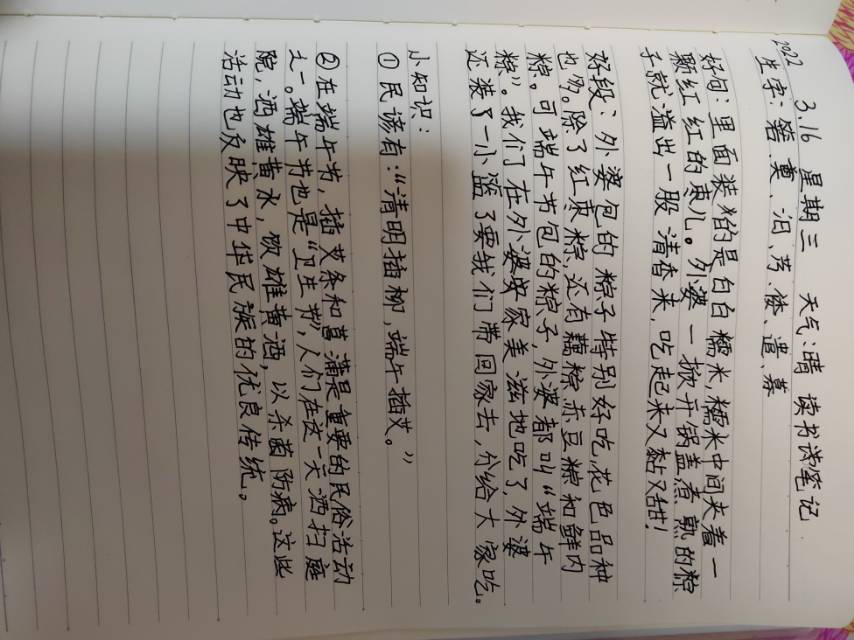 2022 3.16 星期三 天气:晴 读书课笔记
生字:箬、奠、汨、芳、倭、遣、慕
好句:里面装的是白白糯米,糯米中间夹着一
颗红红的枣儿。外婆一掀开锅盖煮熟的粽
子就溢出一股清香来,吃起来又黏又甜!
好段:外婆包的粽子特别好吃,花色品种
也多。除了红枣粽,还有藕粽赤豆粽和鲜肉
粽。可端午节包的粽子,外婆都叫“端午
粽”。我们在外婆家美滋地吃了,外婆
还装了一小篮了要我们带回家去,分给大家吃。
小知识:
①民谚有:“清明插柳,端午插艾。”
②在端午节,插艾条和菖蒲是重要的民俗活动
之一。端午节也是“卫生节”,人们在这一天洒扫庭
院,洒雄黄水,饮雄黄酒,以杀菌防病。这些
活动也反映了中华民族的优良传统。